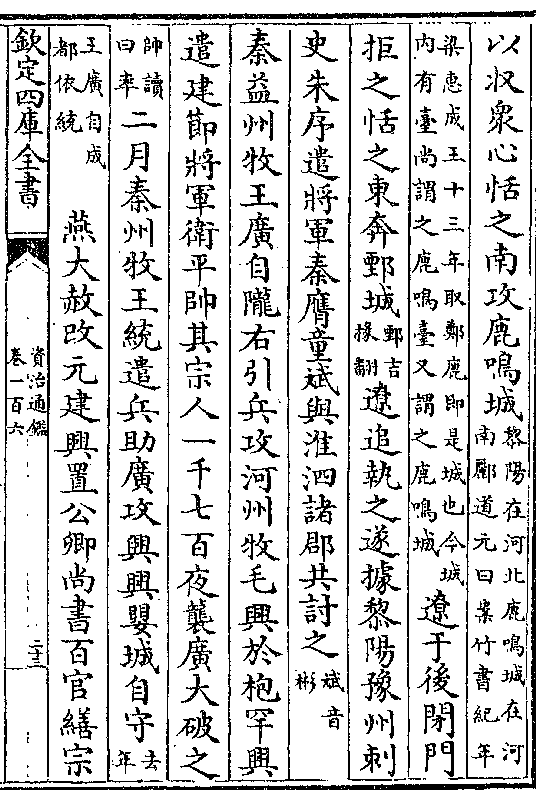 以収衆心恬之南攻鹿鳴城黎陽在河北鹿鳴城在河南酈道元曰案竹書紀年
梁惠成王十三年取鄭鹿即是城也今城内有臺尚謂之鹿鳴臺又謂之鹿鳴城遼于後閉門
拒之恬之東奔鄄城鄄吉掾翻遼追執之遂據黎陽豫州刺
史朱序遣將軍秦膺童斌與淮泗諸郡共討之斌音彬
秦益州牧王廣自隴右引兵攻河州牧毛興於枹罕興
遣建節將軍衛平帥其宗人一千七百夜襲廣大破之
帥讀曰率二月秦州牧王統遣兵助廣攻興興嬰城自守去年
王廣自成都依統 燕大赦改元建興置公卿尚書百官繕宗
欽定四庫全書
資治通鑑
卷一百六
二十三